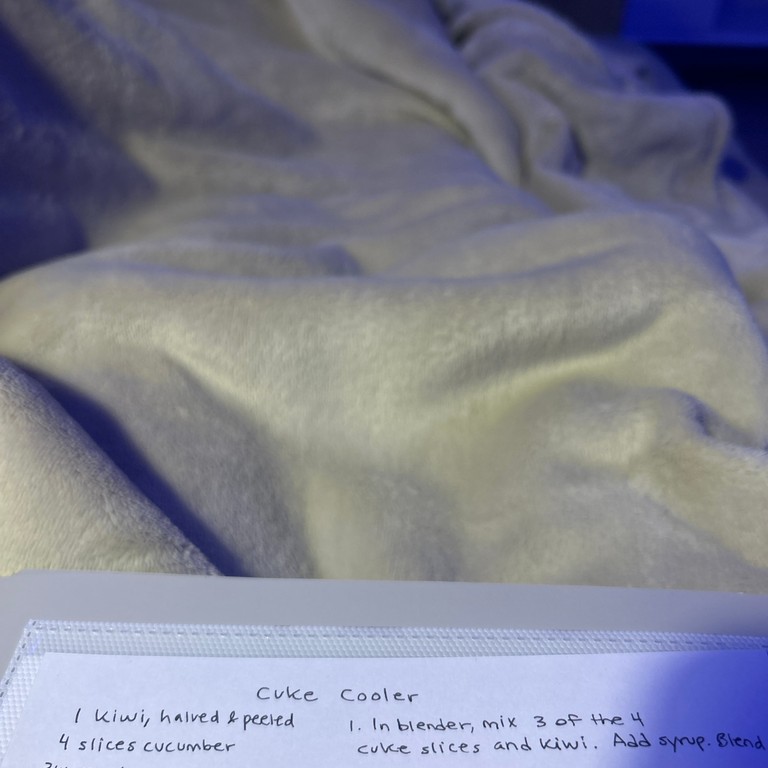 Cuke Cooler
1 Kiwi, halved & peeled
4 slices cucumber
1. In blender, mix 3 of the 4
cuke slices and kiwi. Add syrup. Blend